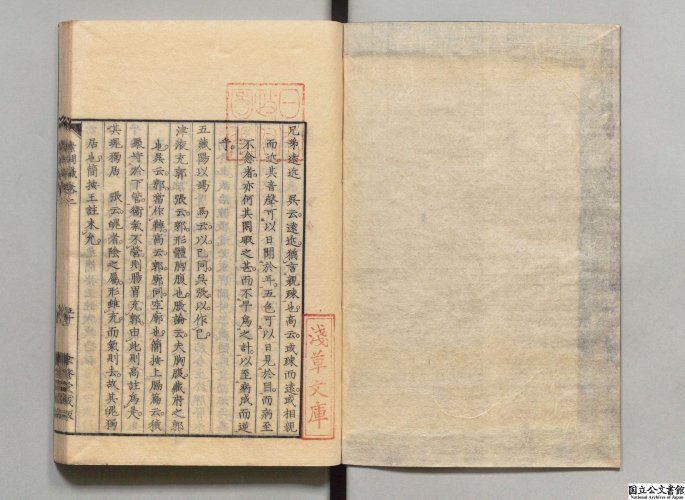 兄弟遠近 吳云遠近猶言親疎也高云或疎而遠或相親
而近其音聲可以日聞於耳五色可以日見於目而病至
不愈者亦何其閑暇之甚而不早爲之計以至病成而逆
乎
五藏陽以竭 馬云以已同吳張以作已
津液充郭 張云郭形體胸腹也脹論云夫胸腹藏府之郭
也吳云郭當作鞹高云郭廓同空廓也簡按上腸篇云衛
於下管衛氣不營則腸胃充郭由此則高註爲是
其魄獨居 張云魄者陰之屬形雖充而氣則去故其魄獨
居也簡按王註未允
淺草文庫
国立公文書館
National Archives of Japan